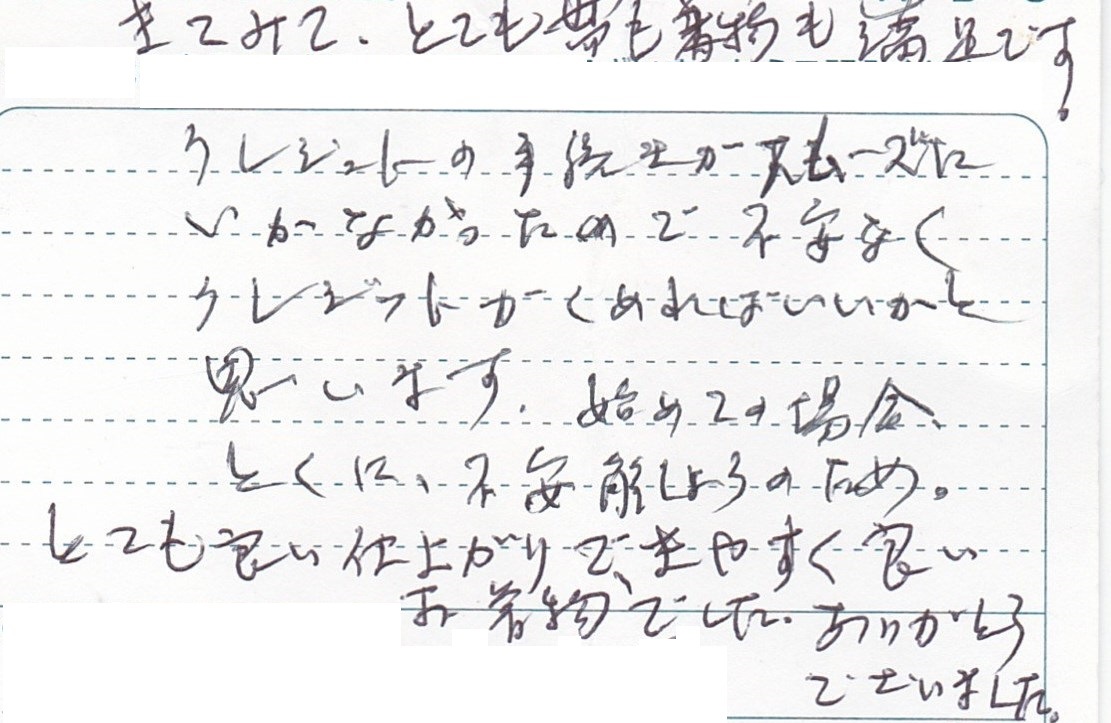 きてみて、とても帯も着物も満足です!
クレジットの手続きがスムーズに
いかなかったので不安なく
クレジットがくめればいいかと
思います。始めての場合、
とくに、不安解しょうのため。
とても良い仕上がりで、きやすく良い
お着物でした。ありがとう
ございました。